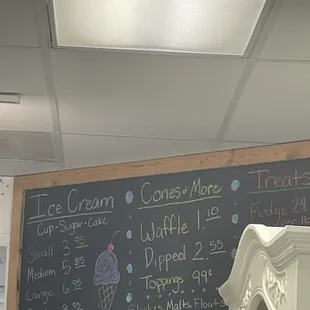 Ice Cream
Cup•Sugar•Cake
Small 3.95
Medium 5.95
Large 6.95
Cones & More
Waffle 1.10
Dipped 2.55
Toppings .99
Shakes, Malts, Floats
Treats
Fudge